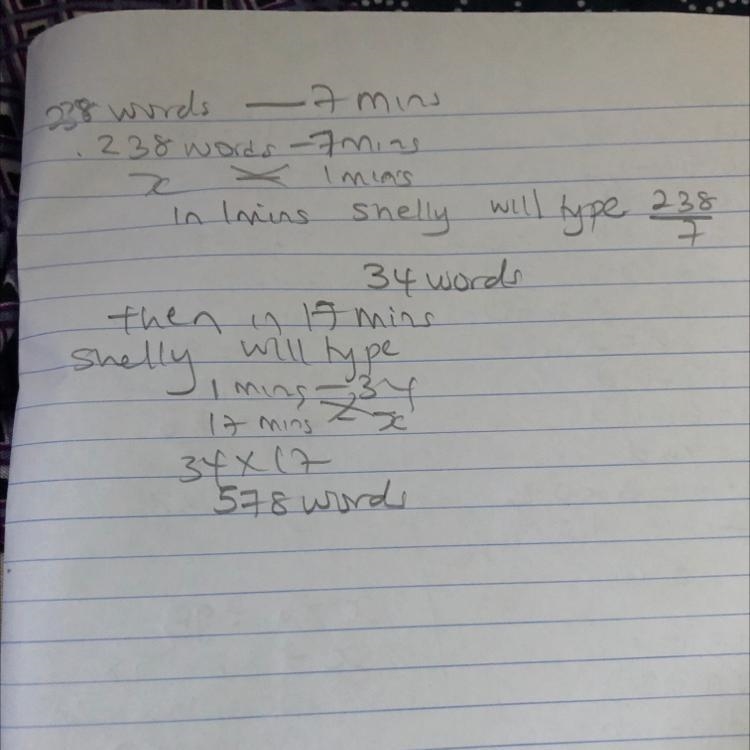 238 words — 7 mins
. 238 words - 7mins
x 1 mins
in 1mins shelly will type 238/7
34 words
then in 17 mins
shelly will type
1 mins = 34
17 mins x
34 x 17
578 words